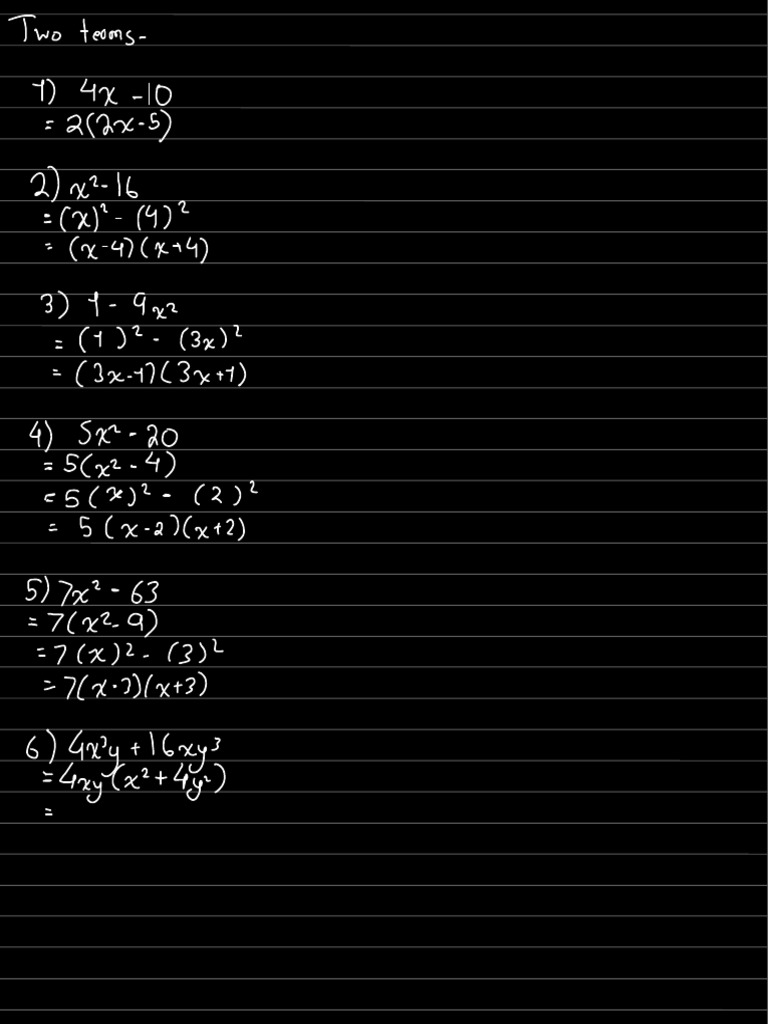 Two terms-
1) 4x - 10
= 2(2x-5)
2) x²-16
= (x)² - (4)²
= (x-4)(x+4)
3) 1 - 9x²
= (1)² - (3x)²
= (3x-1)(3x+1)
4) 5x² - 20
= 5(x² - 4)
= 5(x)² - (2)²
= 5(x-2)(x+2)
5) 7x² - 63
= 7(x²-9)
= 7(x)² - (3)²
= 7(x-3)(x+3)
6) 4x³y + 16xy³
= 4xy(x² + 4y²)
=